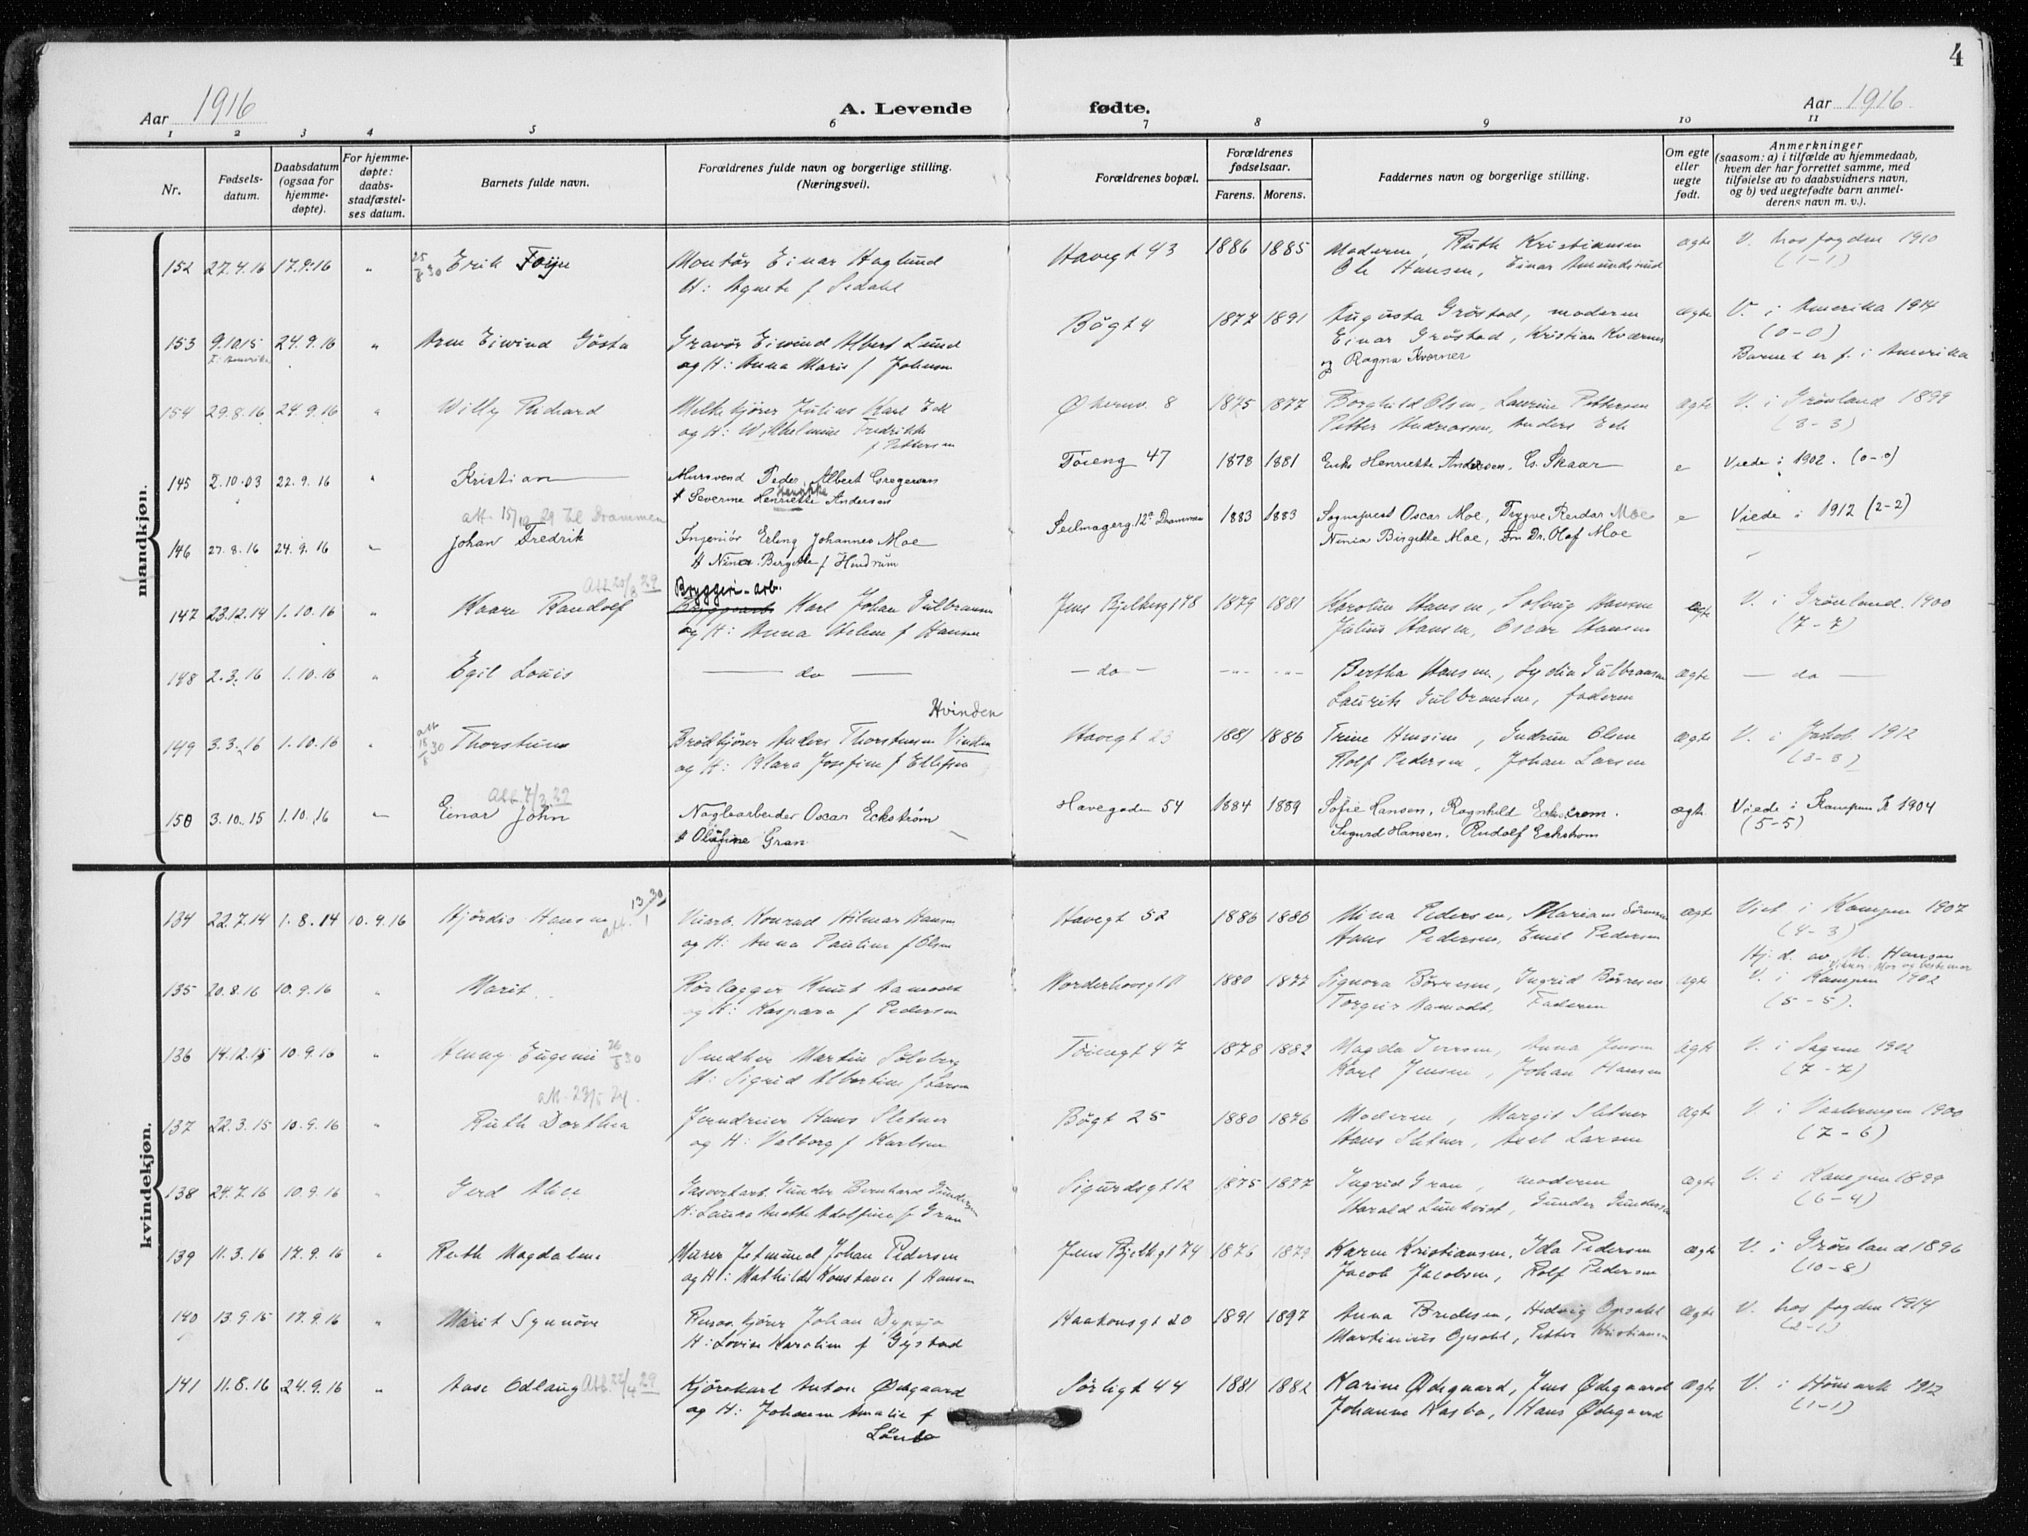 4
Aar 1916 A. Levende fødte. Aar 1916.
1 2 3 4 5 6 7 8 9 10 11
Nr.
Fødsels-
datum.
Daabsdatum
(ogsaa for
hjemme-
døpte).
For hjemme-
døpte:
daabs-
stadfæstel-
ses datum.
Barnets fulde navn.
Forældrenes fulde navn og borgerlige stilling.
(Næringsvei).
Forældrenes bopæl.
Forældrenes
fødselsaar.
Farens. Morens.
Faddernes navn og borgerlige stilling.
Om egte
eller
uegte
født.
Anmerkninger
(saasom: a) i tilfælde av hjemmedaab,
hvem der har forrettet samme, med
tilføielse av to daabsvidners navn,
og b) ved uegtefødte barn anmel-
derens navn m. v.).
mandkjøn.
152 27.4.16 17.9.16 " 25/8 30 Erik Foyn Montør Einar Haglund Havegt 43 1886 1885 Moderen, Ruth Kristiansen ægte V. hos fogden 1910
H: Agnete f Sedahl Ole Hansen, Einar Amundsrud (1-1)
153 9.10 15 24.9.16 " Arne Eiwind Gösta Gravør Eiwind Albert Lund Bøgt 4 1877 1891 Augusta Grøstad, moderen ægte V. i Amerika 1914
F. i Amerika og H: Anna Marie f Johnsen Einar Grøstad, Kristian Kværner (0-0)
og Ragna Kverner Barnet er f. i Amerika
154 29.8.16 24.9.16 " Willy Richard Melkekjører Julius Karl Eek Økernv. 8 1875 1877 Borghild Olsen, Laurine Pettersen ægte V. i Grønland 1899
og H: Wilhelmine Fredrikke Petter Andreassen, Anders Eek (3-3)
f Pettersen
145 2.10.03 22.9.16 " Kristian Mursvend Peder Albert Gregersen Tøieng 47 1878 1881 Henriette Andersen, Skaar e Viede i 1902. (0-0)
& Severine Henriette Andersen
att. 15/12 29 til Drammen
146 27.8.16 24.9.16 " Johan Fredrik Ingeniør Erling Johannes Moe Seilmagerg. 12ª Drammen 1883 1883 Sogneprest Oscar Moe, Trygve Reidar Moe e Viede i 1912 (2-2)
& Nina Birgitte f Hindrum Ninia Birgitte Moe, Fru Dr. Olaf Moe
Att 20/8 29
147 23.12.14 1.10.16 " Kaare Randolf Bryggeri-arb. Karl Johan Gulbransen Jens Bjelkesgt 78 1879 1881 Karoline Hansen, Solveig Hansen ægte V. i Grønland 1900
og H: Anna Helene f Hansen Julius Hansen, Oscar Hansen (7-7)
148 2.3.16 1.10.16 " Egil Louis — do — — do — --- --- Bertha Hansen, Lydia Gulbransen ægte — do —
Laurits Gulbransen, faderen
Hvinden
149 3.3.16 1.10.16 " att 18/8 30 Thorstein Brødkjører Anders Thorstensen Vinden Havegt 23 1881 1886 Trine Hansine, Gudrun Olsen ægte V. i Jakob. 1912
og H: Klara Josefine f Ellefsen Rolf Pedersen, Johan Larsen (3-3)
Att. 7/3 29
150 3.10.15 1.10.16 " Einar John Naglearbeider Oscar Eckstrøm Havegaden 54 1884 1889 Sofie Hansen, Ragnhild Eckstrøm. ægte Viede i Kampen K 1904
& Olufine Gran Sigurd Hansen, Rudolf Eckstrøm (5-5)
kvindekjøn.
134 22.7.14 1.8.14 10.9.16 Hjørdis Hansen att. 13/1 30 Konrad Hilmar Hansen Havegt 52 1886 1886 Mina Pedersen, Mariane Sørensen ægte Viet i Kampen 1907
og H: Anna Pauline f Olsen Hans Pedersen, Emil Pedersen (4-3)
Hj. d. av M. Hansen
135 20.8.16 10.9.16 " Marit Rørlægger Knut Aamodt Norderhovsgt 11 1880 1877 Signora Børresen, Ingrid Børresen ægte V. i Kampen 1902
og H: Kaspara f Pedersen Torgeir Aamodt, Faderen (5-5).
136 14.12.15 10.9.16 " Henny Eugenie 26/8 30 Smedker Martin Solberg Tøiengt 47 1878 1882 Magda Iversen, Anna Jensen ægte V. i Sagene 1902
H: Sigrid Albertine f Larsen Karl Jensen, Johan Hansen (7-7)
att. 23/5 24.
137 22.3.15 10.9.16 " Ruth Dorthea Jerndreier Hans Sletner Bøgt 25 1880 1876 Moderen, Margit Sletner ægte V. i Vaalerengen 1900
og H: Valborg f Karlsen Hans Sletner, Axel Larsen (7-6)
138 24.7.16 10.9.16 " Gerd Alice Gasverkarb. Gunder Bernhard Gundersen Sigurdsgt 12 1875 1877 Ingrid Gran, moderen ægte V. i Kampen 1899
H: Laura Anette Adolfine f Gran Harald Lundkvist, Gunder Gundersen (6-4)
139 11.3.16 17.9.16 " Ruth Magdalene Murer Jetmund Johan Pedersen Jens Bjelkgt 74 1876 1879 Karen Kristiansen, Ida Pedersen ægte V. i Grønland 1896
og H: Mathilde Konstance f Hansen Jacob Jacobsen, Rolf Pedersen (10-8)
140 13.9.15 17.9.16 " Marit Synnøve Johan Dypsjø Haakonsgt 20 1891 1897 Anna Bredesen, Hedvig Opsahl ægte V. hos fogden 1914
H: Lovise Karoline f Gystad Martinius Opsahl, Petter Kristiansen (2-1)
141 11.8.16 24.9.16 " Aase Odlaug Att. 22/4 29 Kjørekarl Anton Ødegaard Sørligt 44 1881 1882 Karine Ødegaard, Jens Ødegaard ægte V. i Hømark 1912
og H: Johanne Amalie f Johanne Kasbo, Hans Ødegaard (1-1)